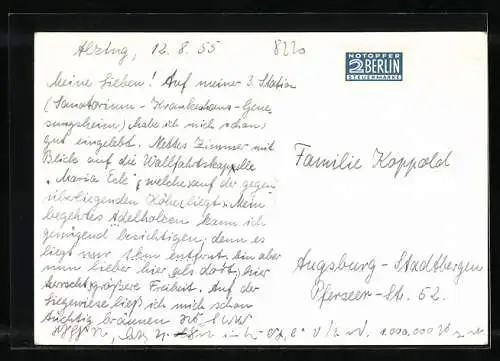 Alzing, 12.8.55 8220
NOTOPFER
2 BERLIN
STEUERMARKE
Meine Lieben! Auf meiner 3. Station
(Sanatorium - Krankenhaus - Gene-
sungsheim) habe ich mich schon
gut eingelebt. Nettes Zimmer mit
Blick auf die Wallfahrtskappelle
„Maria Eck", welche auf der gegen
überliegenden Höhe liegt. Mein
begehrtes Adelholzen kann ich
genügend besichtigen, denn es
liegt nur 1 km entfernt, bin aber
nun lieber hier als dort, hier
herrscht größere Freiheit. Auf der
Liegewiese ließ ich mich schon
tüchtig bräunen
Familie Koppold
Augsburg - Stadtbergen
Pferseer - Str. 52.